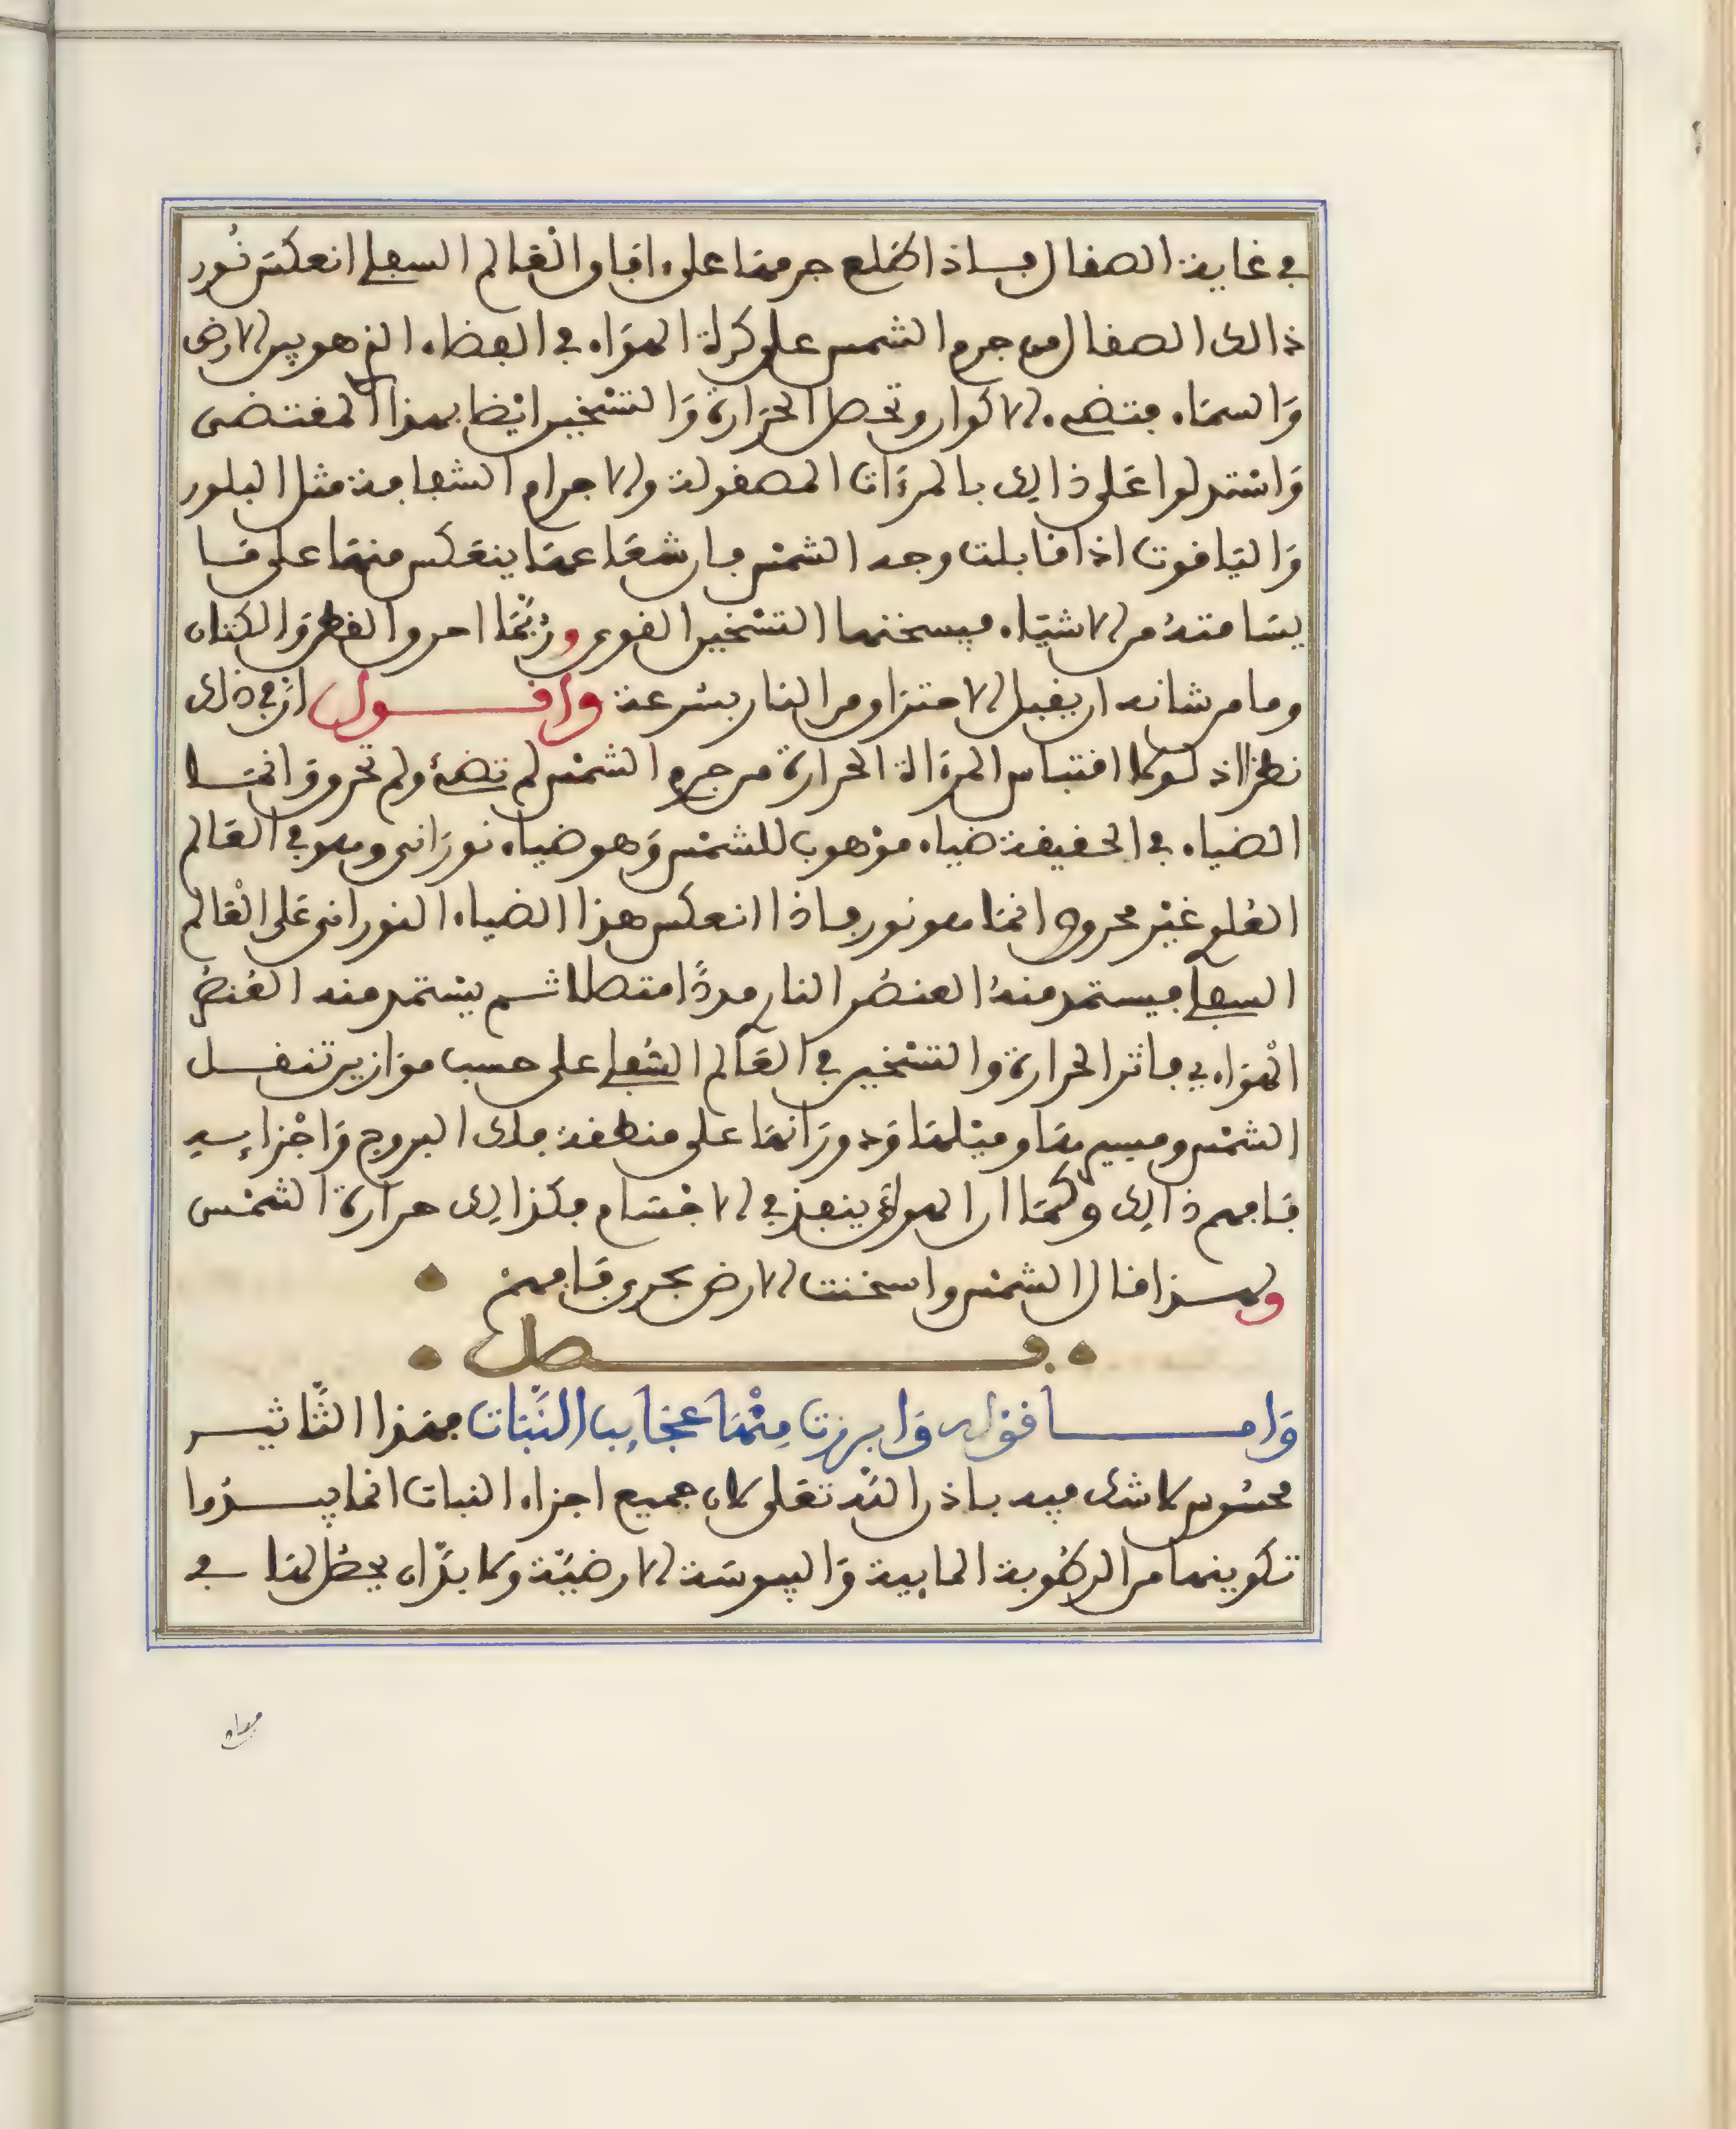 في غاية الصقال فاذا طلع جرمها على افاق العالم السفلي انعكس نور
ذالك الصقال من جرم الشمس على كرة الهواء في الفضاء الذي هو بين الارض
والسماء فتضيء الاكوار وتحصل الحرارة والتسخين ايضا بهذا المقتضى
واستدلوا على ذالك بالمرءات المصقولة والاجرام الشفافة مثل البلور
والياقوت اذا قابلت وجه الشمس فان شعاعها ينعكس منها على ما
يسامته من الاشياء فيسخنها التسخين القوي وربما احرق القطن والكتان
وما من شانه ان يقبل الاحتراق من النار بسرعة واقول ان في ذلك
نظرا اذ لولا اقتباس المرءاة الحرارة من جرم الشمس لم تضئ ولم تحرق وانما
الضياء في الحقيقة ضياء موهوب للشمس وهو ضياء نوراني وهو في العالم
العلوي غير محرق انما هو نور فاذا انعكس هذا الضياء النوراني على العالم
السفلي فيستمد منه العنصر الناري مددا متصلا ثم يستمد منه العنصر
الهواءي فاثر الحرارة والتسخين في العالم السفلي على حسب موازين تنقل
الشمس ومسيرها وميلها ودورانها على منطقة فلك البروج واجزايه
فافهم ذالك وكما ان الهواء ينفذ في الاجسام فكذالك حرارة الشمس
ولهذا قال الشمس واسخنت الارض بحري فافهم
فصل
واما قوله وابرزت منها عجايب النبات فهذا التاثير
محسوس لا شك فيه باذن الله تعلى لان جميع اجزاء النبات انما يبدوا
تكوينها من الرطوبة المايية واليبوسة الارضية ولا بد ان يحصل لها في